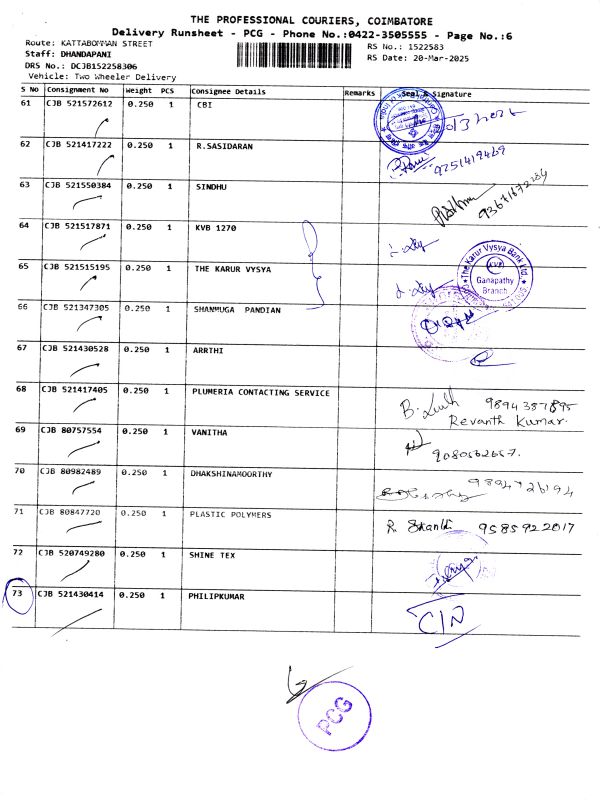 THE PROFESSIONAL COURIERS, COIMBATORE
Delivery Runsheet - PCG - Phone No.:0422-3505555 - Page No.:6
Route: KATTABOMMAN STREET
RS No.: 1522583
Staff: DHANDAPANI
RS Date: 20-Mar-2025
DRS No.: DCJB152258306
Vehicle: Two Wheeler Delivery
S No Consignment No Weight PCS Consignee Details Remarks Seal & Signature
61 CJB 521572612 0.250 1 CBI
62 CJB 521417222 0.250 1 R.SASIDARAN
63 CJB 521550384 0.250 1 SINDHU
64 CJB 521517871 0.250 1 KVB 1270
65 CJB 521515195 0.250 1 THE KARUR VYSYA
The Karur Vysya Bank Ltd.
KVB
Ganapathy
Branch
66 CJB 521347305 0.250 1 SHANMUGA PANDIAN
67 CJB 521430528 0.250 1 ARRTHI
68 CJB 521417405 0.250 1 PLUMERIA CONTACTING SERVICE
Revanth Kumar.
69 CJB 80757554 0.250 1 VANITHA
70 CJB 80982489 0.250 1 DHAKSHINAMOORTHY
71 CJB 80847720 0.250 1 PLASTIC POLYMERS 9585922017
72 CJB 520749280 0.250 1 SHINE TEX
73 CJB 521430414 0.250 1 PHILIPKUMAR
PCG